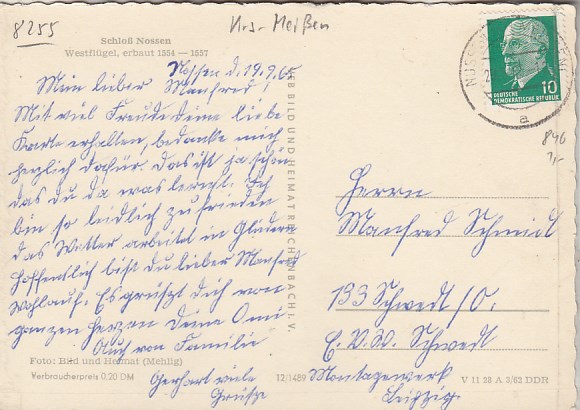 8255
Krs. Meißen
Schloß Nossen
Westflügel, erbaut 1554 — 1557
Nossen d. 19.9.65
Mein lieber Manfred!
Mit viel Freude deine liebe
Karte erhalten, bedanke mich
herzlich dafür. Das ist ja schön
das du da was lernst. Ich
bin so leidlich zufrieden
das Wetter arbeitet in Gliedern
Hoffentlich bist du lieber Manfred
wohlauf. Es grüßt Dich von
ganzen Herzen Deine Omi
Auch von Familie
Gerhart viele
Grüße
Foto: Bild und Heimat (Mehlig)
Verbraucherpreis 0.20 DM
12/1489
VEB BILD UND HEIMAT REICHENBACH I. V.
10
DEUTSCHE
DEMOKRATISCHE REPUBLIK
NOSSEN
a
846
Herrn
Manfred Schmidt
133 Schwedt/O.
E.V.W. Schwedt
Montagewerk
Leipzig
V 11 28 A 3/62 DDR